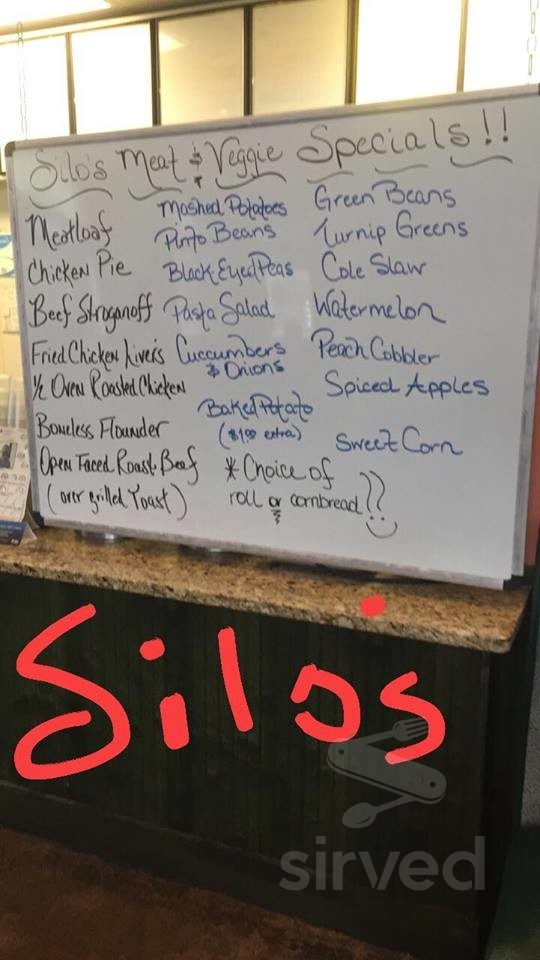 Silo's Meat & Veggie Specials!!
Meatloaf
Chicken Pie
Beef Stroganoff
Fried Chicken Livers
1/2 Oven Roasted Chicken
Boneless Flounder
Open Faced Roast Beef
(over grilled Toast)
Mashed Potatoes
Pinto Beans
Black-Eyed Peas
Pasta Salad
Cuccumbers
& Onions
Baked Potato
($1.00 extra)
* Choice of
roll or cornbread??
Green Beans
Turnip Greens
Cole Slaw
Watermelon
Peach Cobbler
Spiced Apples
Sweet Corn
Silo's
sirved